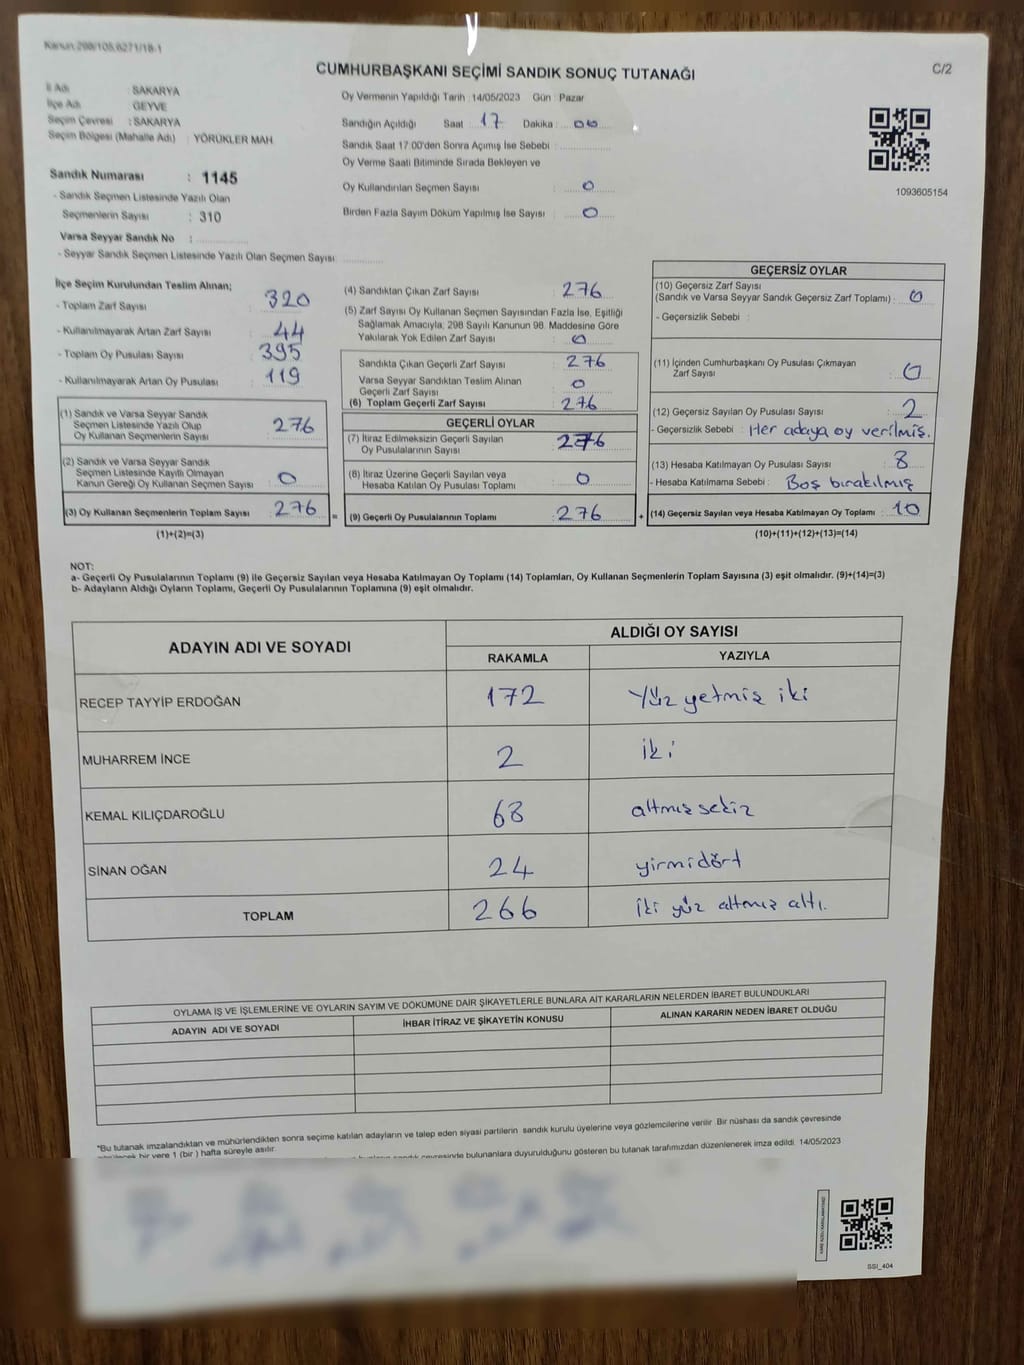 Kanun:298/105,6271/18-1
CUMHURBAŞKANI SEÇİMİ SANDIK SONUÇ TUTANAĞI
C/2
İl Adı : SAKARYA
İlçe Adı : GEYVE
Seçim Çevresi : SAKARYA
Seçim Bölgesi (Mahalle Adı) : YÖRÜKLER MAH
Sandık Numarası : 1145
- Sandık Seçmen Listesinde Yazılı Olan
Seçmenlerin Sayısı : 310
Varsa Seyyar Sandık No :
- Seyyar Sandık Seçmen Listesinde Yazılı Olan Seçmen Sayısı:
Oy Vermenin Yapıldığı Tarih :14/05/2023 Gün : Pazar
Sandığın Açıldığı Saat : 17 Dakika : 00
Sandık Saat 17:00'den Sonra Açımış İse Sebebi :
Oy Verme Saati Bitiminde Sırada Bekleyen ve
Oy Kullandırılan Seçmen Sayısı : 0
Birden Fazla Sayım Döküm Yapılmış İse Sayısı : 0
1093605154
İlçe Seçim Kurulundan Teslim Alınan;
- Toplam Zarf Sayısı : 320
- Kullanılmayarak Artan Zarf Sayısı : 44
- Toplam Oy Pusulası Sayısı : 395
- Kullanılmayarak Artan Oy Pusulası : 119
(1) Sandık ve Varsa Seyyar Sandık
Seçmen Listesinde Yazılı Olup
Oy Kullanan Seçmenlerin Sayısı : 276
(2) Sandık ve Varsa Seyyar Sandık
Seçmen Listesinde Kayıtlı Olmayan
Kanun Gereği Oy Kullanan Seçmen Sayısı : 0
(3) Oy Kullanan Seçmenlerin Toplam Sayısı : 276
(1)+(2)=(3)
(4) Sandıktan Çıkan Zarf Sayısı : 276
(5) Zarf Sayısı Oy Kullanan Seçmen Sayısından Fazla İse, Eşitliği
Sağlamak Amacıyla; 298 Sayılı Kanunun 98. Maddesine Göre
Yakılarak Yok Edilen Zarf Sayısı : 0
Sandıkta Çıkan Geçerli Zarf Sayısı : 276
Varsa Seyyar Sandıktan Teslim Alınan
Geçerli Zarf Sayısı : 0
(6) Toplam Geçerli Zarf Sayısı : 276
GEÇERLİ OYLAR
(7) İtiraz Edilmeksizin Geçerli Sayılan
Oy Pusulalarının Sayısı : 276
(8) İtiraz Üzerine Geçerli Sayılan veya
Hesaba Katılan Oy Pusulası Toplamı : 0
= (9) Geçerli Oy Pusulalarının Toplamı : 276 +
GEÇERSİZ OYLAR
(10) Geçersiz Zarf Sayısı
(Sandık ve Varsa Seyyar Sandık Geçersiz Zarf Toplamı) : 0
- Geçersizlik Sebebi :
(11) İçinden Cumhurbaşkanı Oy Pusulası Çıkmayan
Zarf Sayısı : 0
(12) Geçersiz Sayılan Oy Pusulası Sayısı : 2
- Geçersizlik Sebebi : Her adaya oy verilmiş.
(13) Hesaba Katılmayan Oy Pusulası Sayısı : 8
- Hesaba Katılmama Sebebi : Boş bırakılmış
(14) Geçersiz Sayılan veya Hesaba Katılmayan Oy Toplamı : 10
(10)+(11)+(12)+(13)=(14)
NOT:
a- Geçerli Oy Pusulalarının Toplamı (9) ile Geçersiz Sayılan veya Hesaba Katılmayan Oy Toplamı (14) Toplamları, Oy Kullanan Seçmenlerin Toplam Sayısına (3) eşit olmalıdır. (9)+(14)=(3)
b- Adayların Aldığı Oyların Toplamı, Geçerli Oy Pusulalarının Toplamına (9) eşit olmalıdır.
ADAYIN ADI VE SOYADI
ALDIĞI OY SAYISI
RAKAMLA YAZIYLA
RECEP TAYYİP ERDOĞAN 172 Yüz yetmiş iki
MUHARREM İNCE 2 iki
KEMAL KILIÇDAROĞLU 68 altmış sekiz
SİNAN OĞAN 24 yirmidört
TOPLAM 266 iki yüz altmış altı.
OYLAMA İŞ VE İŞLEMLERİNE VE OYLARIN SAYIM VE DÖKÜMÜNE DAİR ŞİKAYETLERLE BUNLARA AİT KARARLARIN NELERDEN İBARET BULUNDUKLARI
ADAYIN ADI VE SOYADI
İHBAR İTİRAZ VE ŞİKAYETİN KONUSU
ALINAN KARARIN NEDEN İBARET OLDUĞU
*Bu tutanak imzalandıktan ve mühürlendikten sonra seçime katılan adayların ve talep eden siyasi partilerin sandık kurulu üyelerine veya gözlemcilerine verilir Bir nüshası da sandık çevresinde
bir yere 1 (bir ) hafta süreyle asılır.
bulunanlara duyurulduğunu gösteren bu tutanak tarafımızdan düzenlenerek imza edildi. 14/05/2023
SSI_404